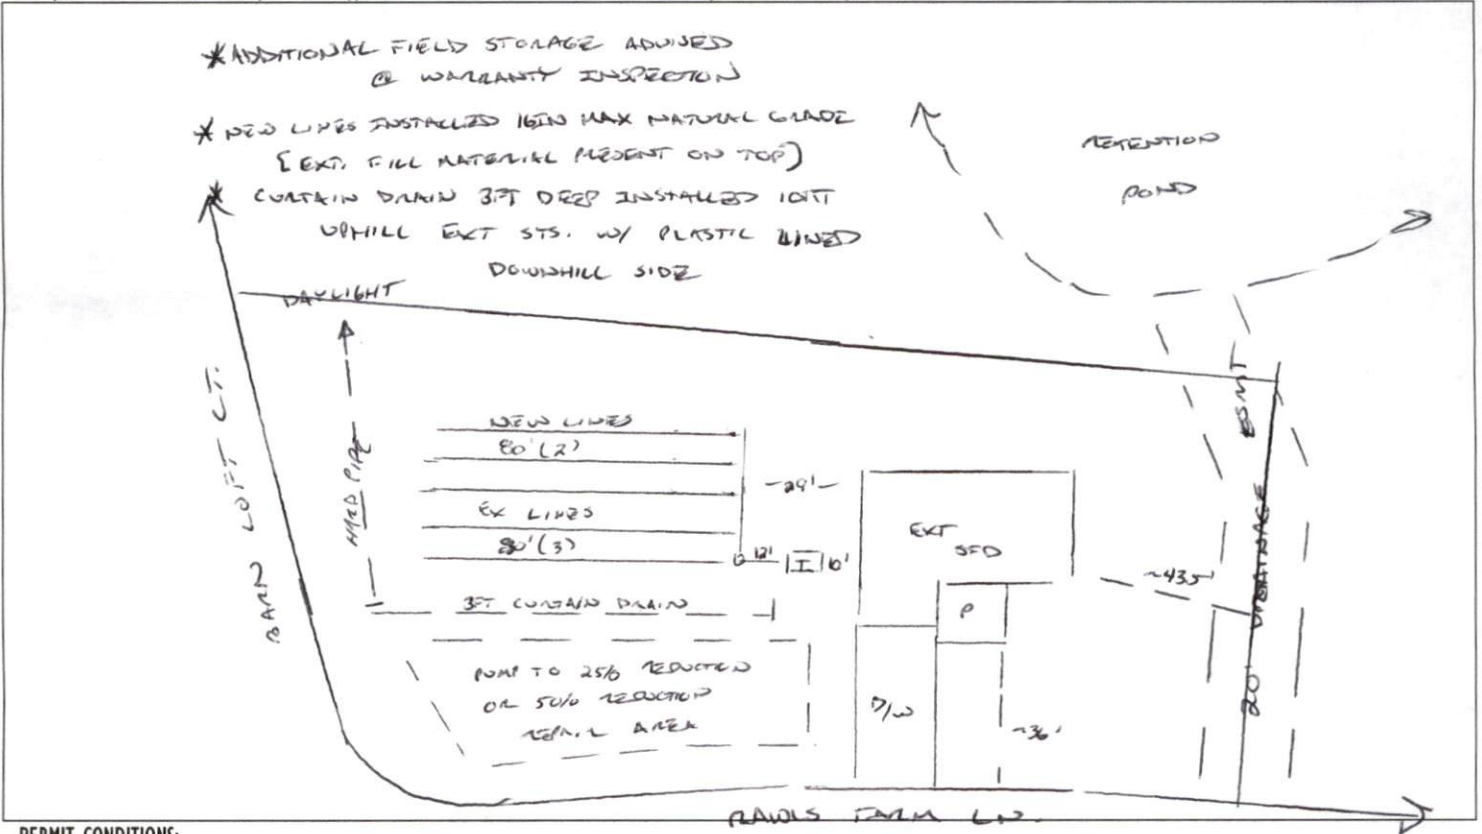 *ADDITIONAL FIELD STORAGE ADVISED
@ WARRANTY INSPECTION
* NEW LINES INSTALLED 18IN MAX NATURAL GRADE
[EXT. FILL MATERIAL PRESENT ON TOP]
* CURTAIN DRAIN 3FT DEEP INSTALLED 10FT
UPHILL EXT STS. W/ PLASTIC LINED
DOWNHILL SIDE
RETENTION
POND
DAYLIGHT
BARN LOFT CT.
HARD PIPE
NEW LINES
80'(2)
EX LINES
80'(3)
-29'-
12'
I
10'
EXT
SFD
P
D/W
~36'
~435'
20' DRAINAGE ESMT
3FT CURTAIN DRAIN
PUMP TO 25% REDUCTION
OR 50% REDUCTION
REPAIR AREA
RAWLS FARM LN.
PERMIT CONDITIONS: